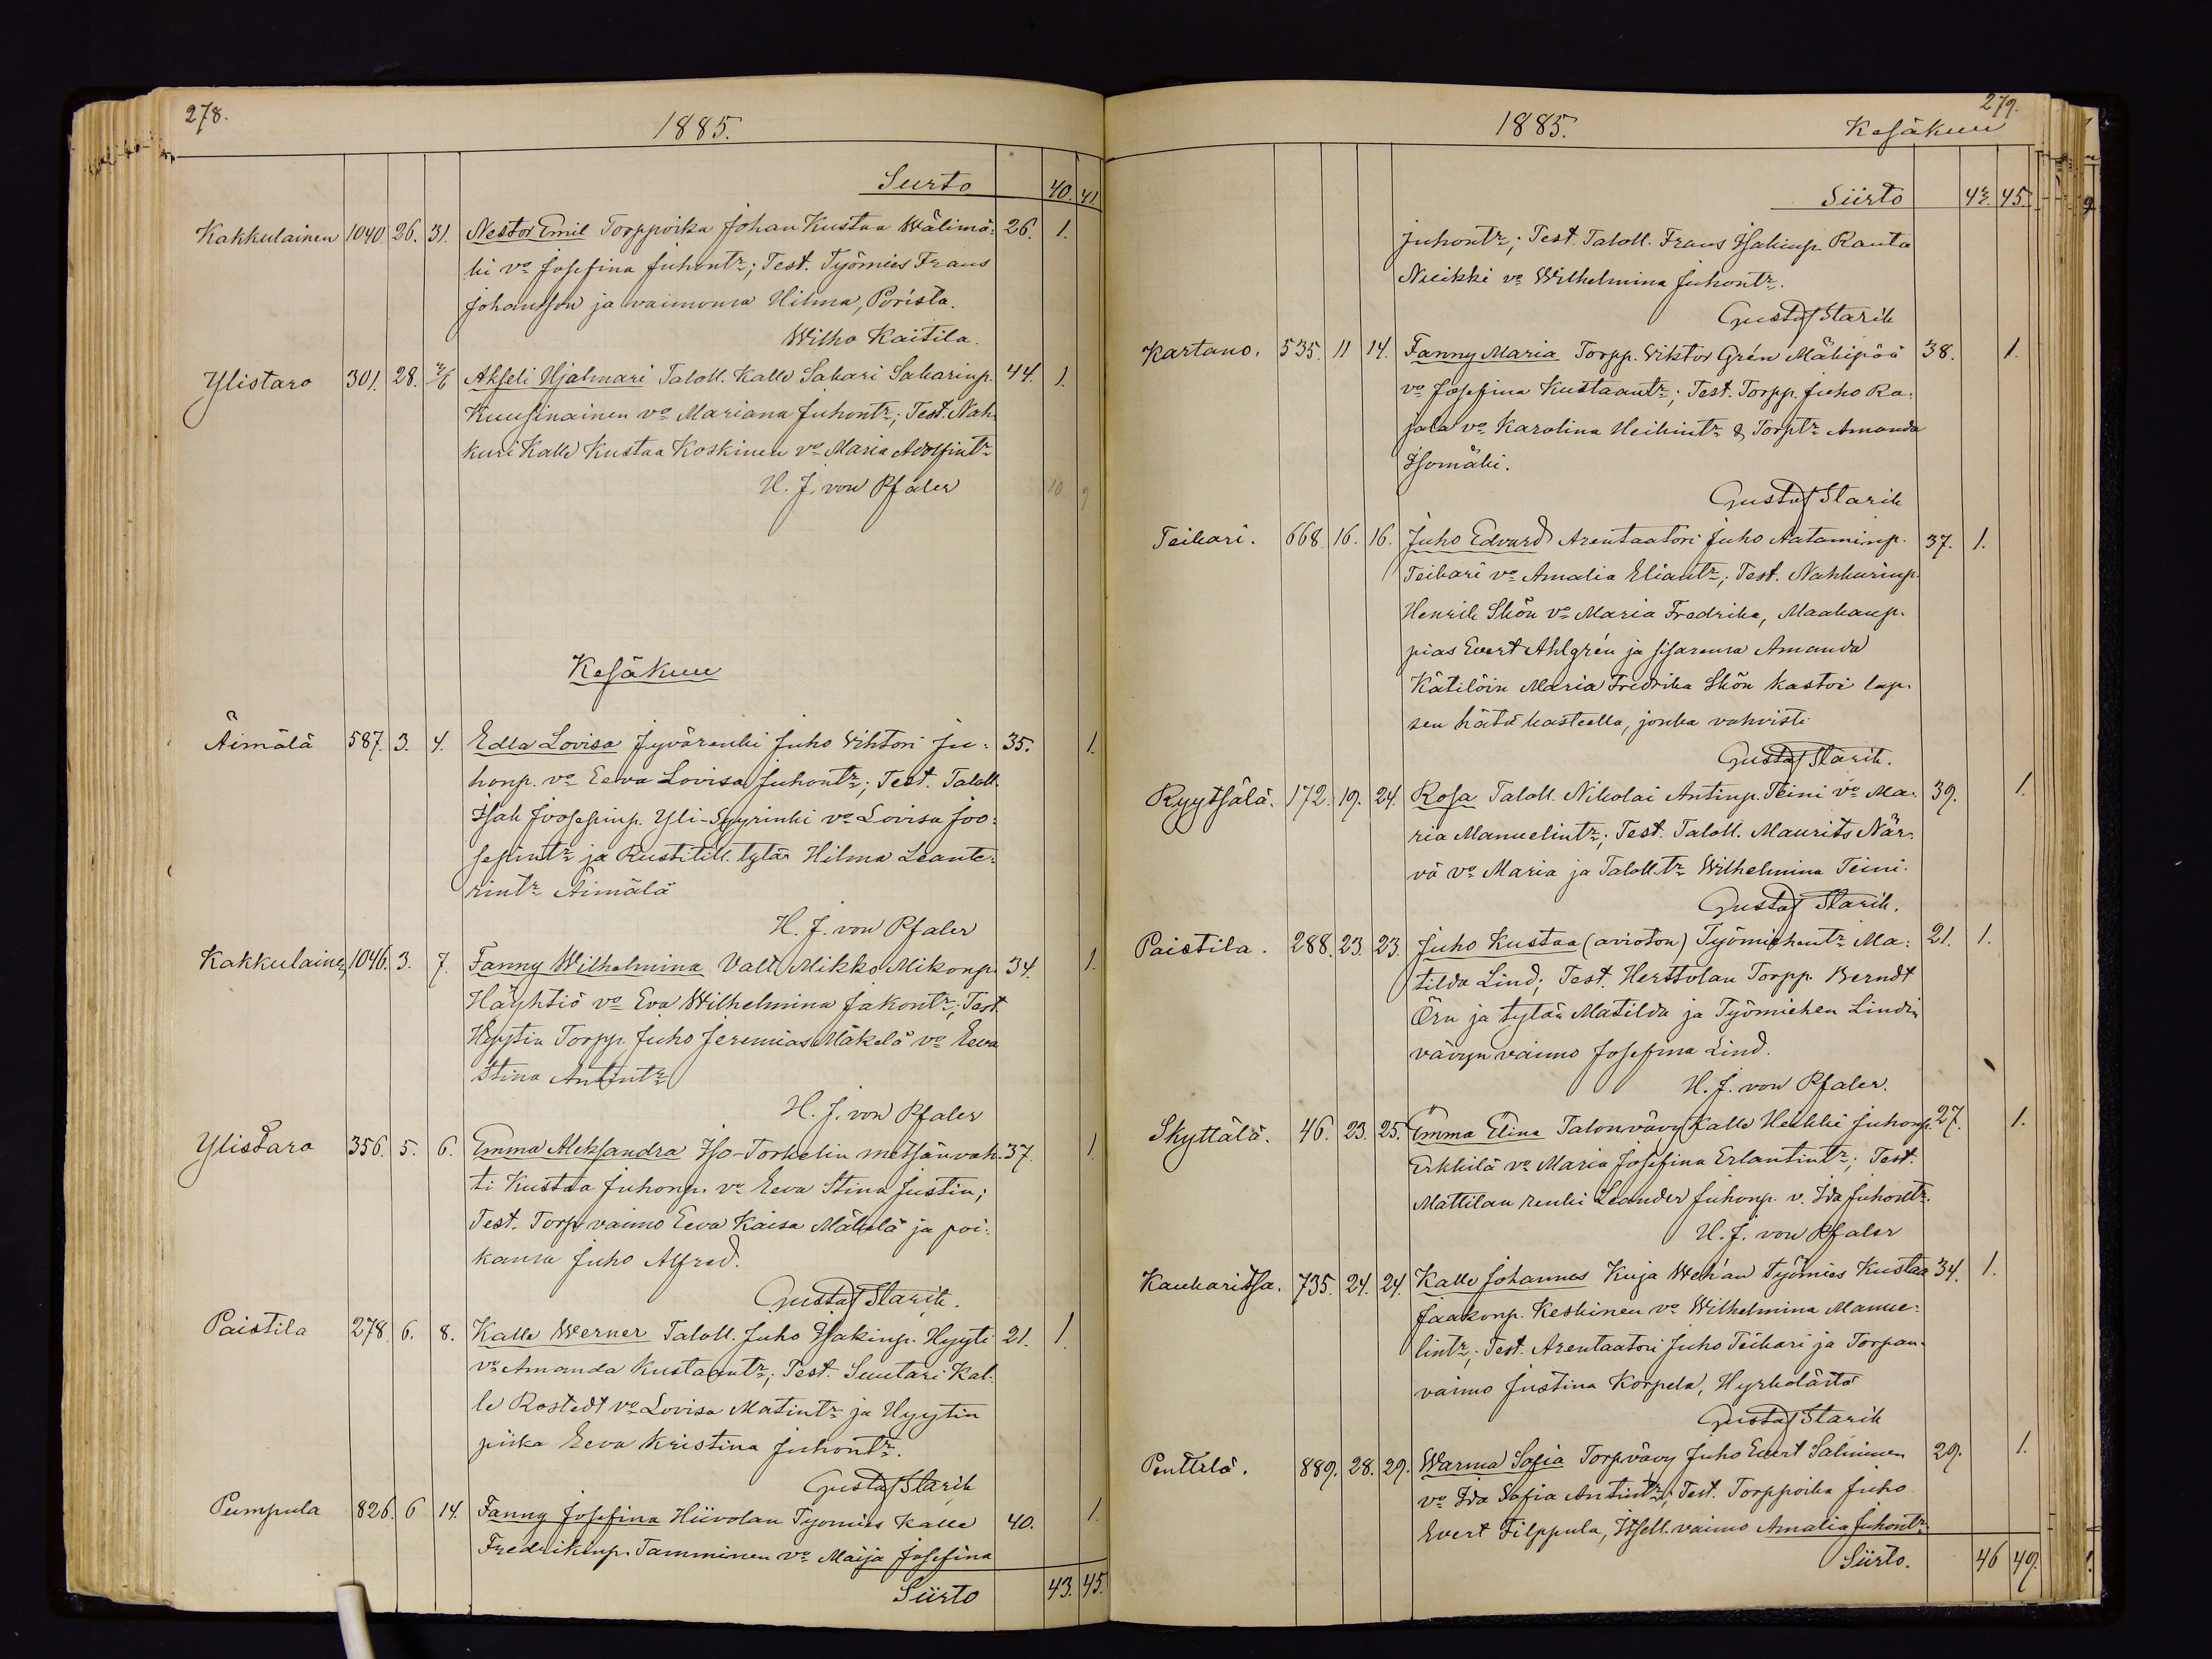 278.
1885.
Siirto 40. 41
Kakkulainen 1040. 26. 31. Nestor Emil Torppoika Johan Kustaa Wälimä- 26. 1.
ki vo Josefina Juhontr; Test. Työmies Frans
Johansson ja vaimonsa Hilma, Porista.
Wilho Kaitila.
Ylistaro 301. 28. 2/6 Akseli Hjalmari Taloll. Kalle Sakari Sakarinp. 44. 1.
Kuusinainen vo Mariana Juhontr; Test. Nah-
kuri Kalle Kustaa Koskinen vo Maria Adolfintr
H. J. von Pfaler 10 9
Kesäkuu
Äimälä 587. 3. 4. Edla Lovisa Jyvärenki Juho Vihtori Ju- 35. 1.
honp. vo Eeva Lovisa Juhontr; Test. Taloll.
Isak Joosepinp. Yli-Syyrinki vo Lovisa Joo-
sepintr ja Rustitill. tytär Hilma Leante-
rintr Äimälä
H. J. von Pfaler
Kakkulainen 1046. 3. 7. Fanny Wilhelmina Vall. Mikko Mikonp. 34. 1.
Häyhtiö vo Eva Wilhelmina Jakontr; Test.
Hyytin Torpp. Juho Jeremias Mäkelä vo Eeva
Stina Antintr
H. J. von Pfaler
Ylistaro 356. 5. 6. Emma Aleksandra Iso-Torkelin metsänvah- 37. 1
ti Kustaa Juhonp. vo Eeva Stina Justin;
Test. Torp. vaimo Eeva Kaisa Mäkelä ja poi-
kansa Juho Alfred.
Gustaf Starik.
Paistila 278. 6. 8. Kalle Werner Taloll. Juho Isakinp. Hyyti 21. 1.
vo Amanda Kustaantr; Test. Suutari Kal-
le Rostedt vo Lovisa Matintr ja Hyytin
piika Eeva Kristina Juhontr.
Gustaf Starik
Pumpula 826. 6 14. Fanny Josefina Hiivolan Tyomies Kalle 40. 1.
Fredrikinp. Tamminen vo Maija Josefina
Siirto 43. 45.
279.
1885. Kesäkuu
Siirto 42. 45.
Juhontr; Test. Taloll. Frans Isakinp. Ranta
Nuikki vo Wilhelmina Juhontr.
Gustaf Starik
Kartano. 535. 11 14. Fanny Maria Torpp. Viktor Grén Mäkipää 38. 1.
vo Josefina Kustaantr; Test. Torpp. Juho Ra-
jala vo Karolina Heikintr & Torptr Amanda
Isomäki.
Gustaf Starik
Teikari. 668. 16. 16. Juho Edvard Arentaatori Juho Aataminp. 37. 1.
Teikari vo Amalia Eliantr; Test. Nahkurinp.
Henrik Skön vo Maria Fredrika, Maakaup-
pias Evert Ahlgrén ja sisarensa Amanda
Kätilöin Maria Fredrika Skön kastoi lap-
sen hätä kasteella, jonka vahvisti
Gustaf Starik.
Ryytsälä. 172. 19. 24. Rosa Taloll. Nikolai Antinp. Teini vo Ma- 39. 1.
ria Manuelintr; Test. Taloll. Maurits När-
vä vo Maria ja Taloll.tr Wilhelmina Teini.
Gustaf Starik.
Paistila. 288. 23. 23. Juho Kustaa (avioton) Työmiehentr Ma- 21. 1.
tilda Lind; Test. Herttolan Torpp. Berndt
Örn ja tytär Matilda ja Työmiehen Lindin
vävyn vaimo Josefina Lind.
H. J. von Pfaler.
Skyttälä. 46. 23. 25. Emma Elina Talonvävy Kalle Heikki Juhonp. 27. 1.
Erkkilä vo Maria Josefina Erlantintr; Test.
Mattilan renki Leander Juhonp. v. Ida Juhontr.
H. J. von Pfaler
Kaukaritsa. 735. 24. 24. Kalle Johannes Kuja Weh'an Työmies Kustaa 34. 1.
Jaakonp. Keskinen vo Wilhelmina Manue-
lintr; Test. Arentaatori Juho Teikari ja Torpan-
vaimo Justina Korpela, Hyrkolästä
Gustaf Starik
Penttilä. 889. 28. 29. Warma Sofia Torpvävy Juho Evert Salminen 29. 1.
vo Ida Sofia Antintr; Test. Torppoika Juho
Evert Filppula, Itsell. vaimo Amalia Juhontr.
Siirto. 46 49.